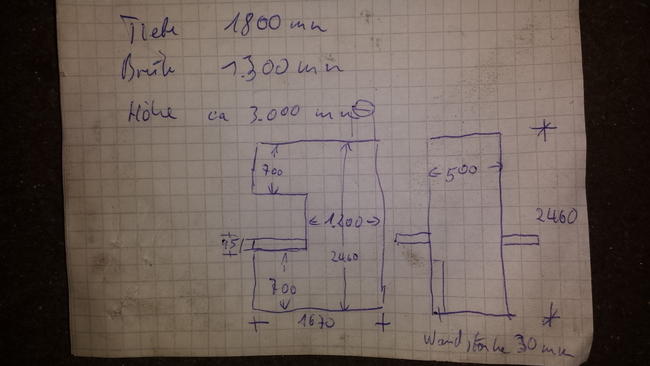 Tiefe 1800 mm
Breite 1.300 mm
Höhe ca 3.000 mm
700
500
1200
2460
2460
700
1670
Wandstärke 30 mm